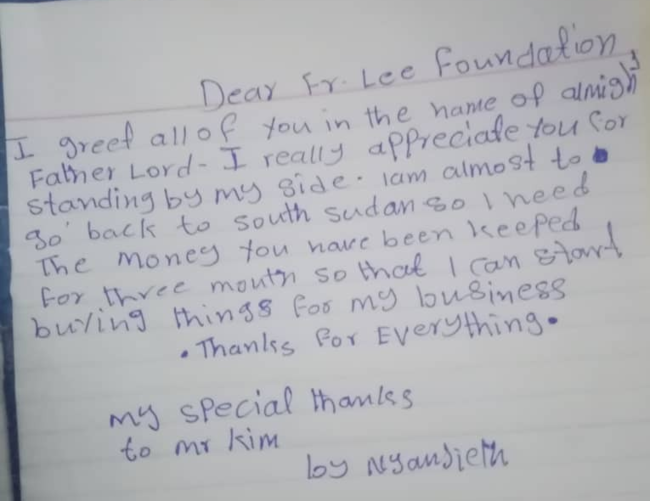 Dear Fr. Lee Foundation,
I greet all of you in the name of almight
Father Lord - I really appreciate you for
standing by my side. iam almost to
go back to south sudan so I need
The money you have been keeped
for three mouth so that I can start
buying things for my business
• Thanks for Everything.
my special thanks
to mr kim
by